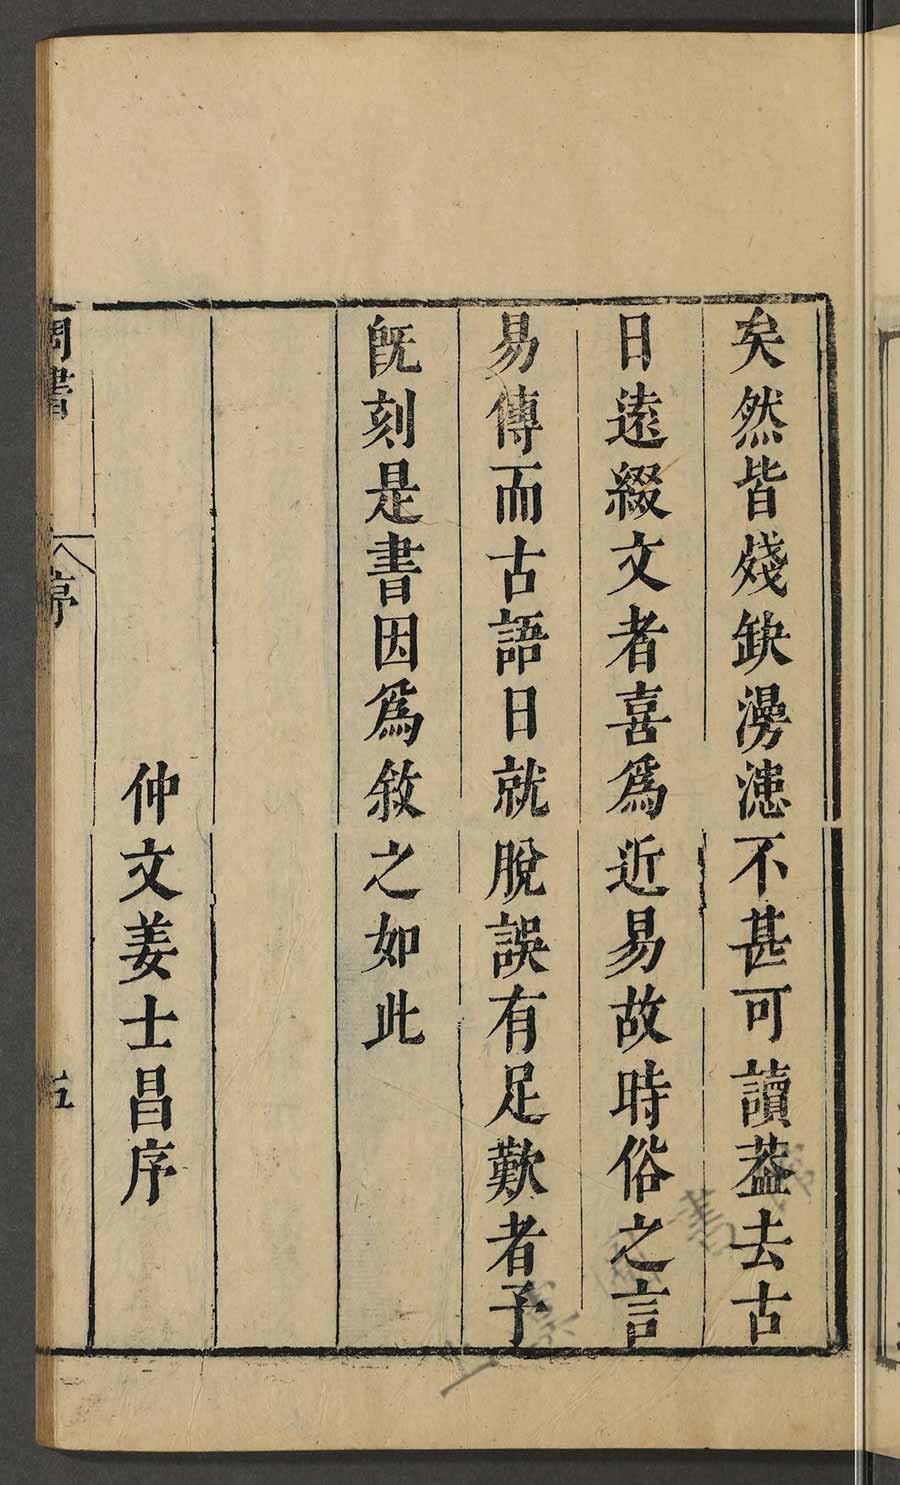 矣然皆殘缺漫漶不甚可讀葢去古
日遠綴文者喜爲近易故時俗之言
易傳而古語日就脫誤有足歎者予
旣刻是書因爲敘之如此
仲文姜士昌序
周書
序
五